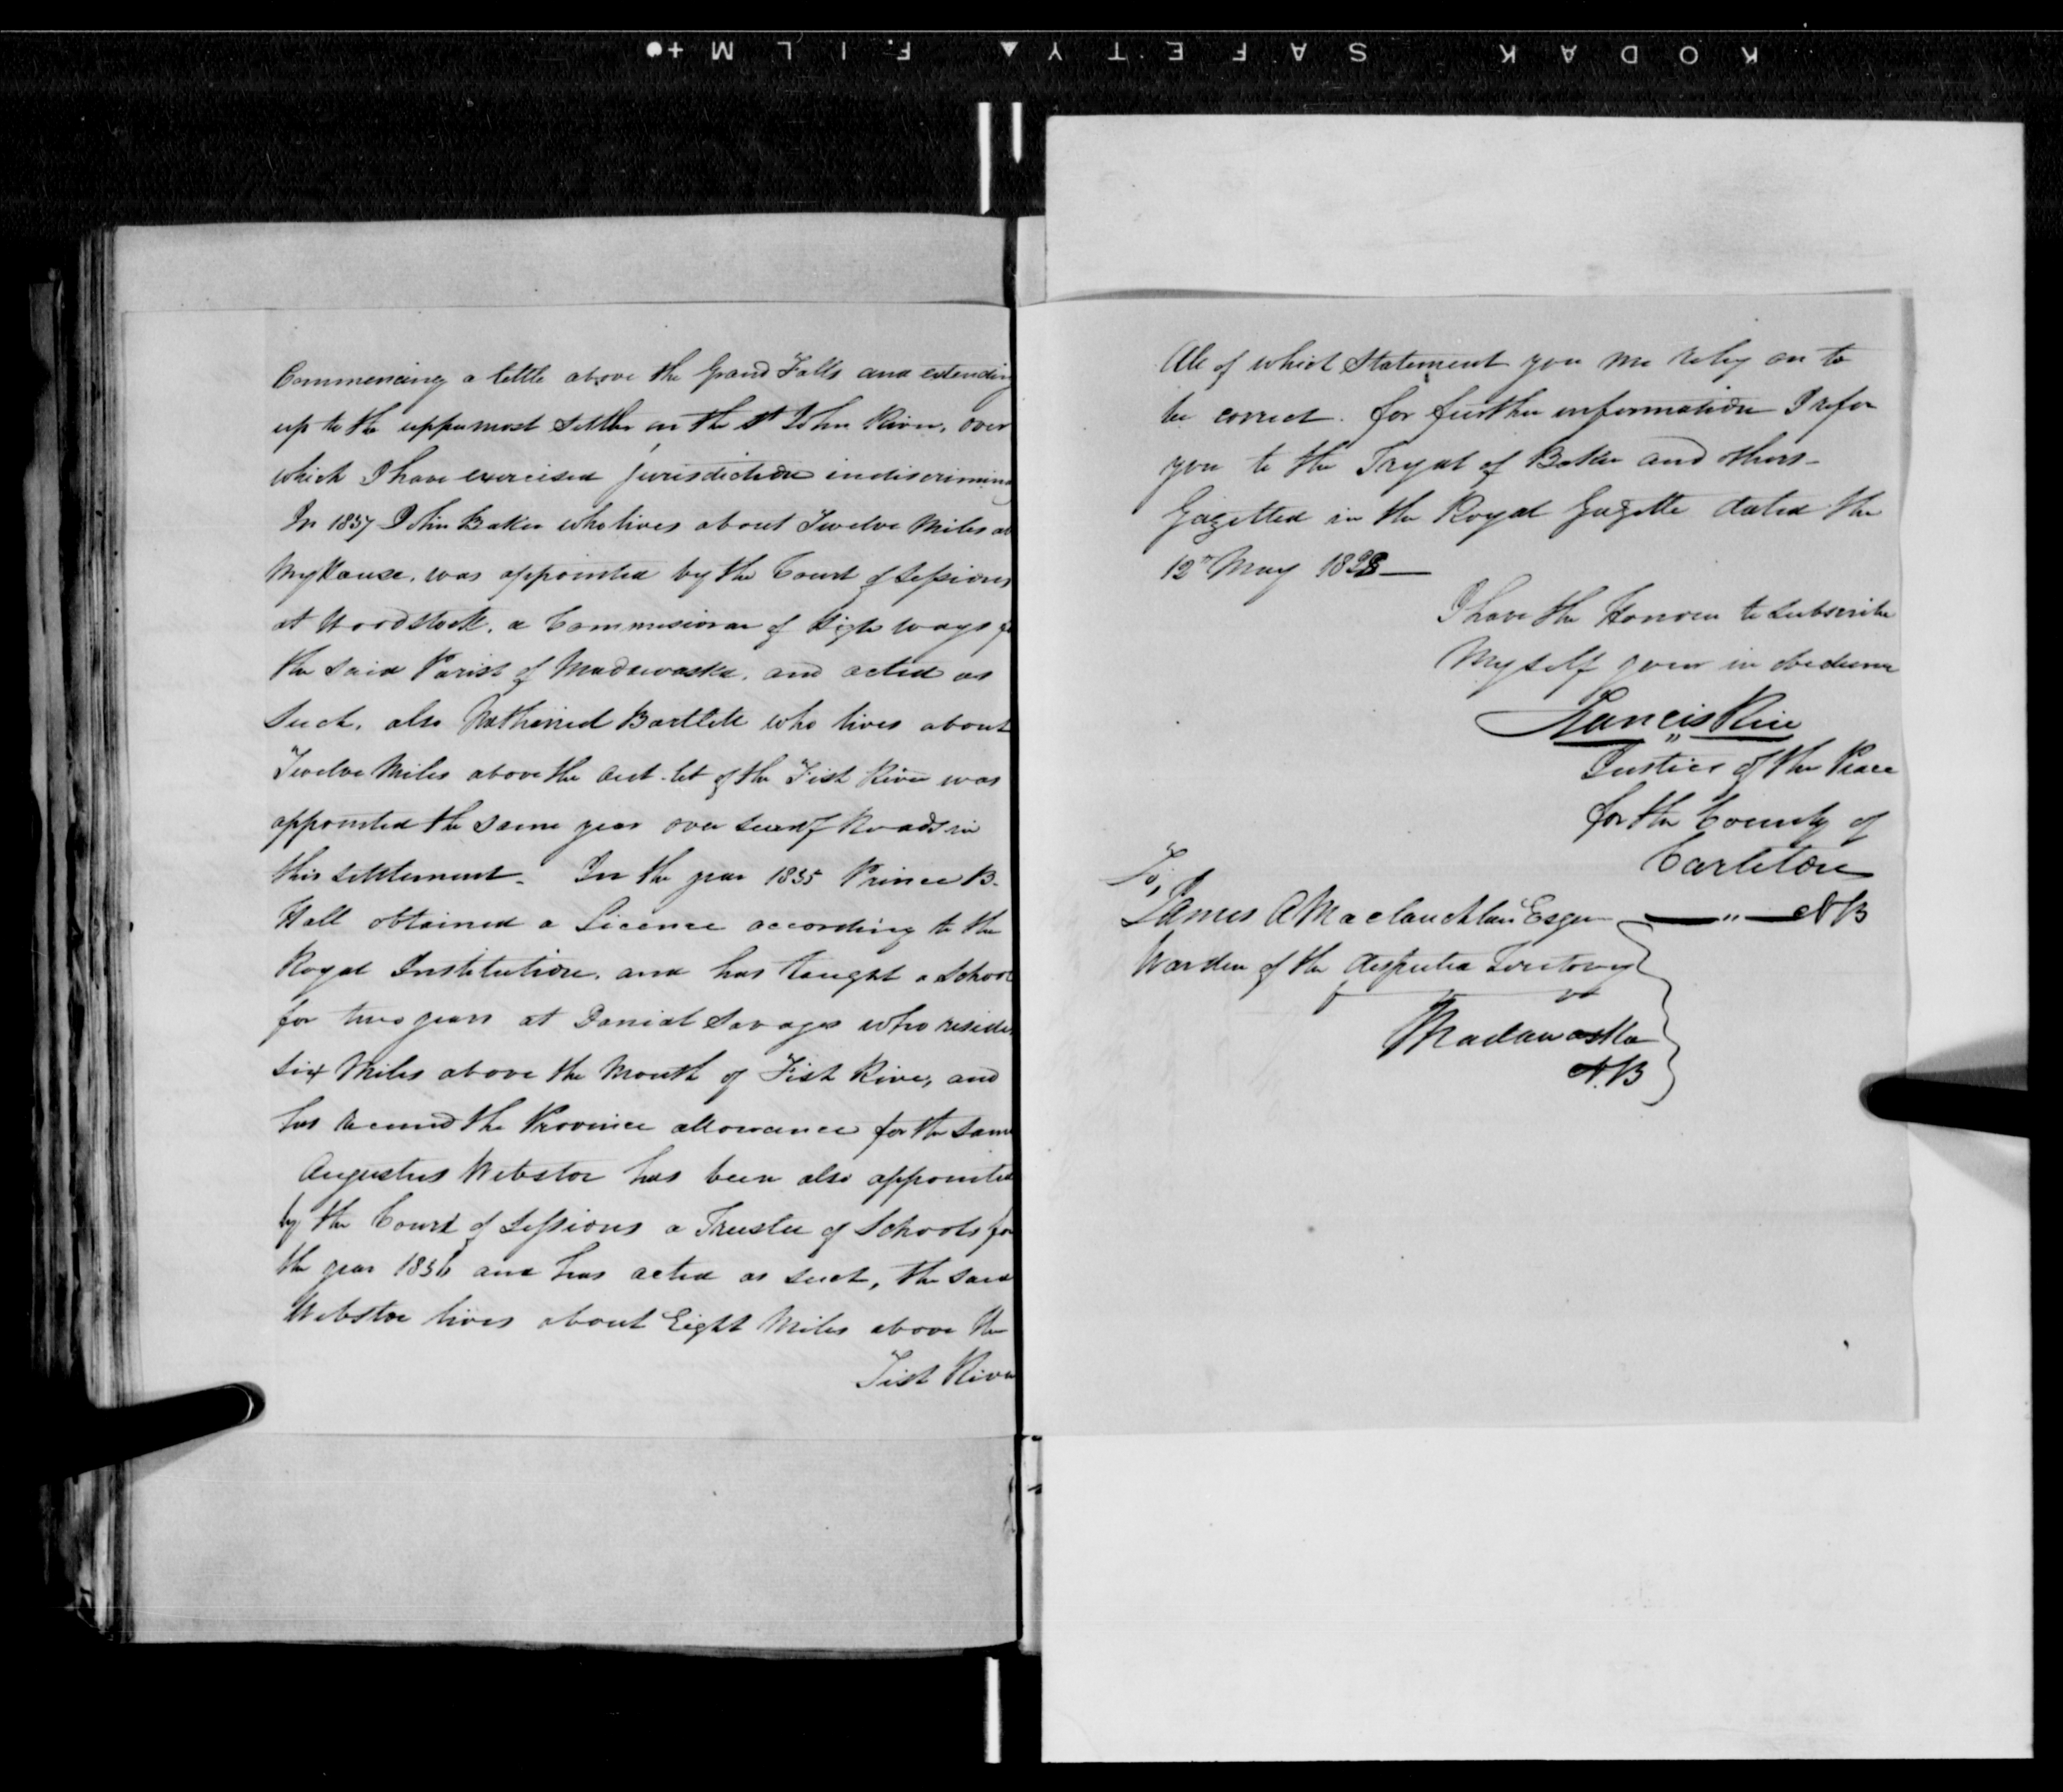 KODAK SAFETY ▲ FILM +●
Commencing a little above the Grand Falls and extending
up to the uppermost settler on the St John River, over
which I have exercised jurisdiction indiscrimin
In 1837 John Baker who lives about Twelve Miles ab
My House, was appointed by the Court of Sessions
at Woodstock, a Commisioner of High ways fo
the said Parish of Madawaska, and acted as
such, also Nathaniel Bartlett who lives about
Twelve Miles above the out-let of the Fish River was
appointed the same year over seer of Roads in
this settlement - In the year 1835 Prince B.
Hall obtained a Licence according to the
Royal Institution, and has taught a School
for two years at Daniel Savages who resides
six Miles above the Mouth of Fish River, and
has received the Province allowance for the same
Augustus Webster has been also appointed
by the Court of Sessions a Trustee of Schools for
the year 1836 and has acted as such, the said
Webster lives about Eight Miles above the
Fish River
All of which Statement you me rely on to
be correct. for further information I refer
you to the Tryal of Baker and others -
Gazetted in the Royal Gazette dated the
12th May 1828 —
I have the Honour to subscribe
Myself your in obedience
Francis Rice
Justice of the Peace
for the County of
Carleton
To,
James A Maclauchlan Esqr — " — NB
Warden of the disputed Territory
Madawaska
N.B